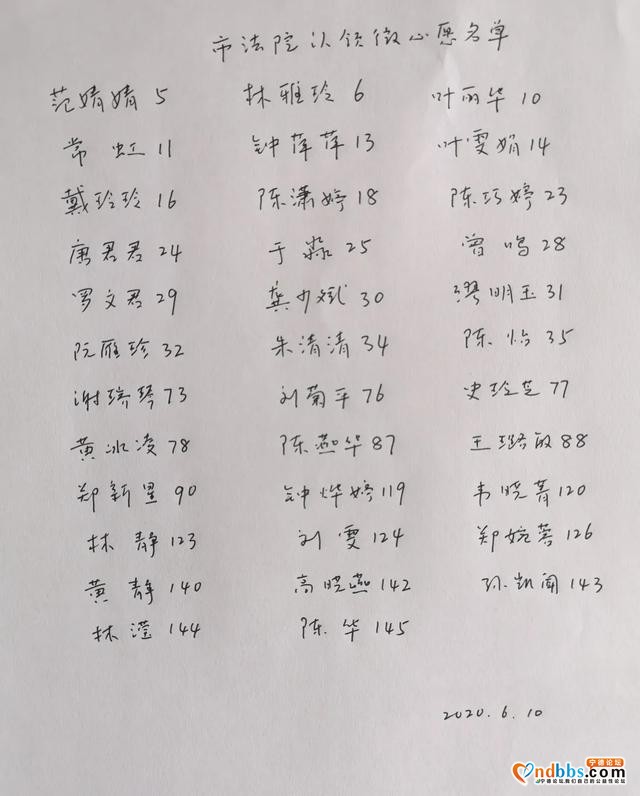 市法院认领微心愿名单
范婧婧 5 林雅玲 6 叶丽华 10
常虹 11 钟萍萍 13 叶雯娟 14
戴玲玲 16 陈潇婷 18 陈巧婷 23
唐君君 24 于淼 25 曾鸣 28
罗文君 29 龚少斌 30 缪明玉 31
阮雁珍 32 朱清清 34 陈怡 35
谢琼琴 73 刘菊平 76 史玲芝 77
黄冰凌 78 陈燕华 87 王璐敏 88
郑新星 90 钟烨婷 119 韦晓菁 120
林静 123 刘雯 124 郑婉蓉 126
黄静 140 高晓燕 142 孙凯闻 143
林滢 144 陈华 145
2020.6.10
宁德论坛
ndbbs.com
宁德论坛我们自己的公益性论坛